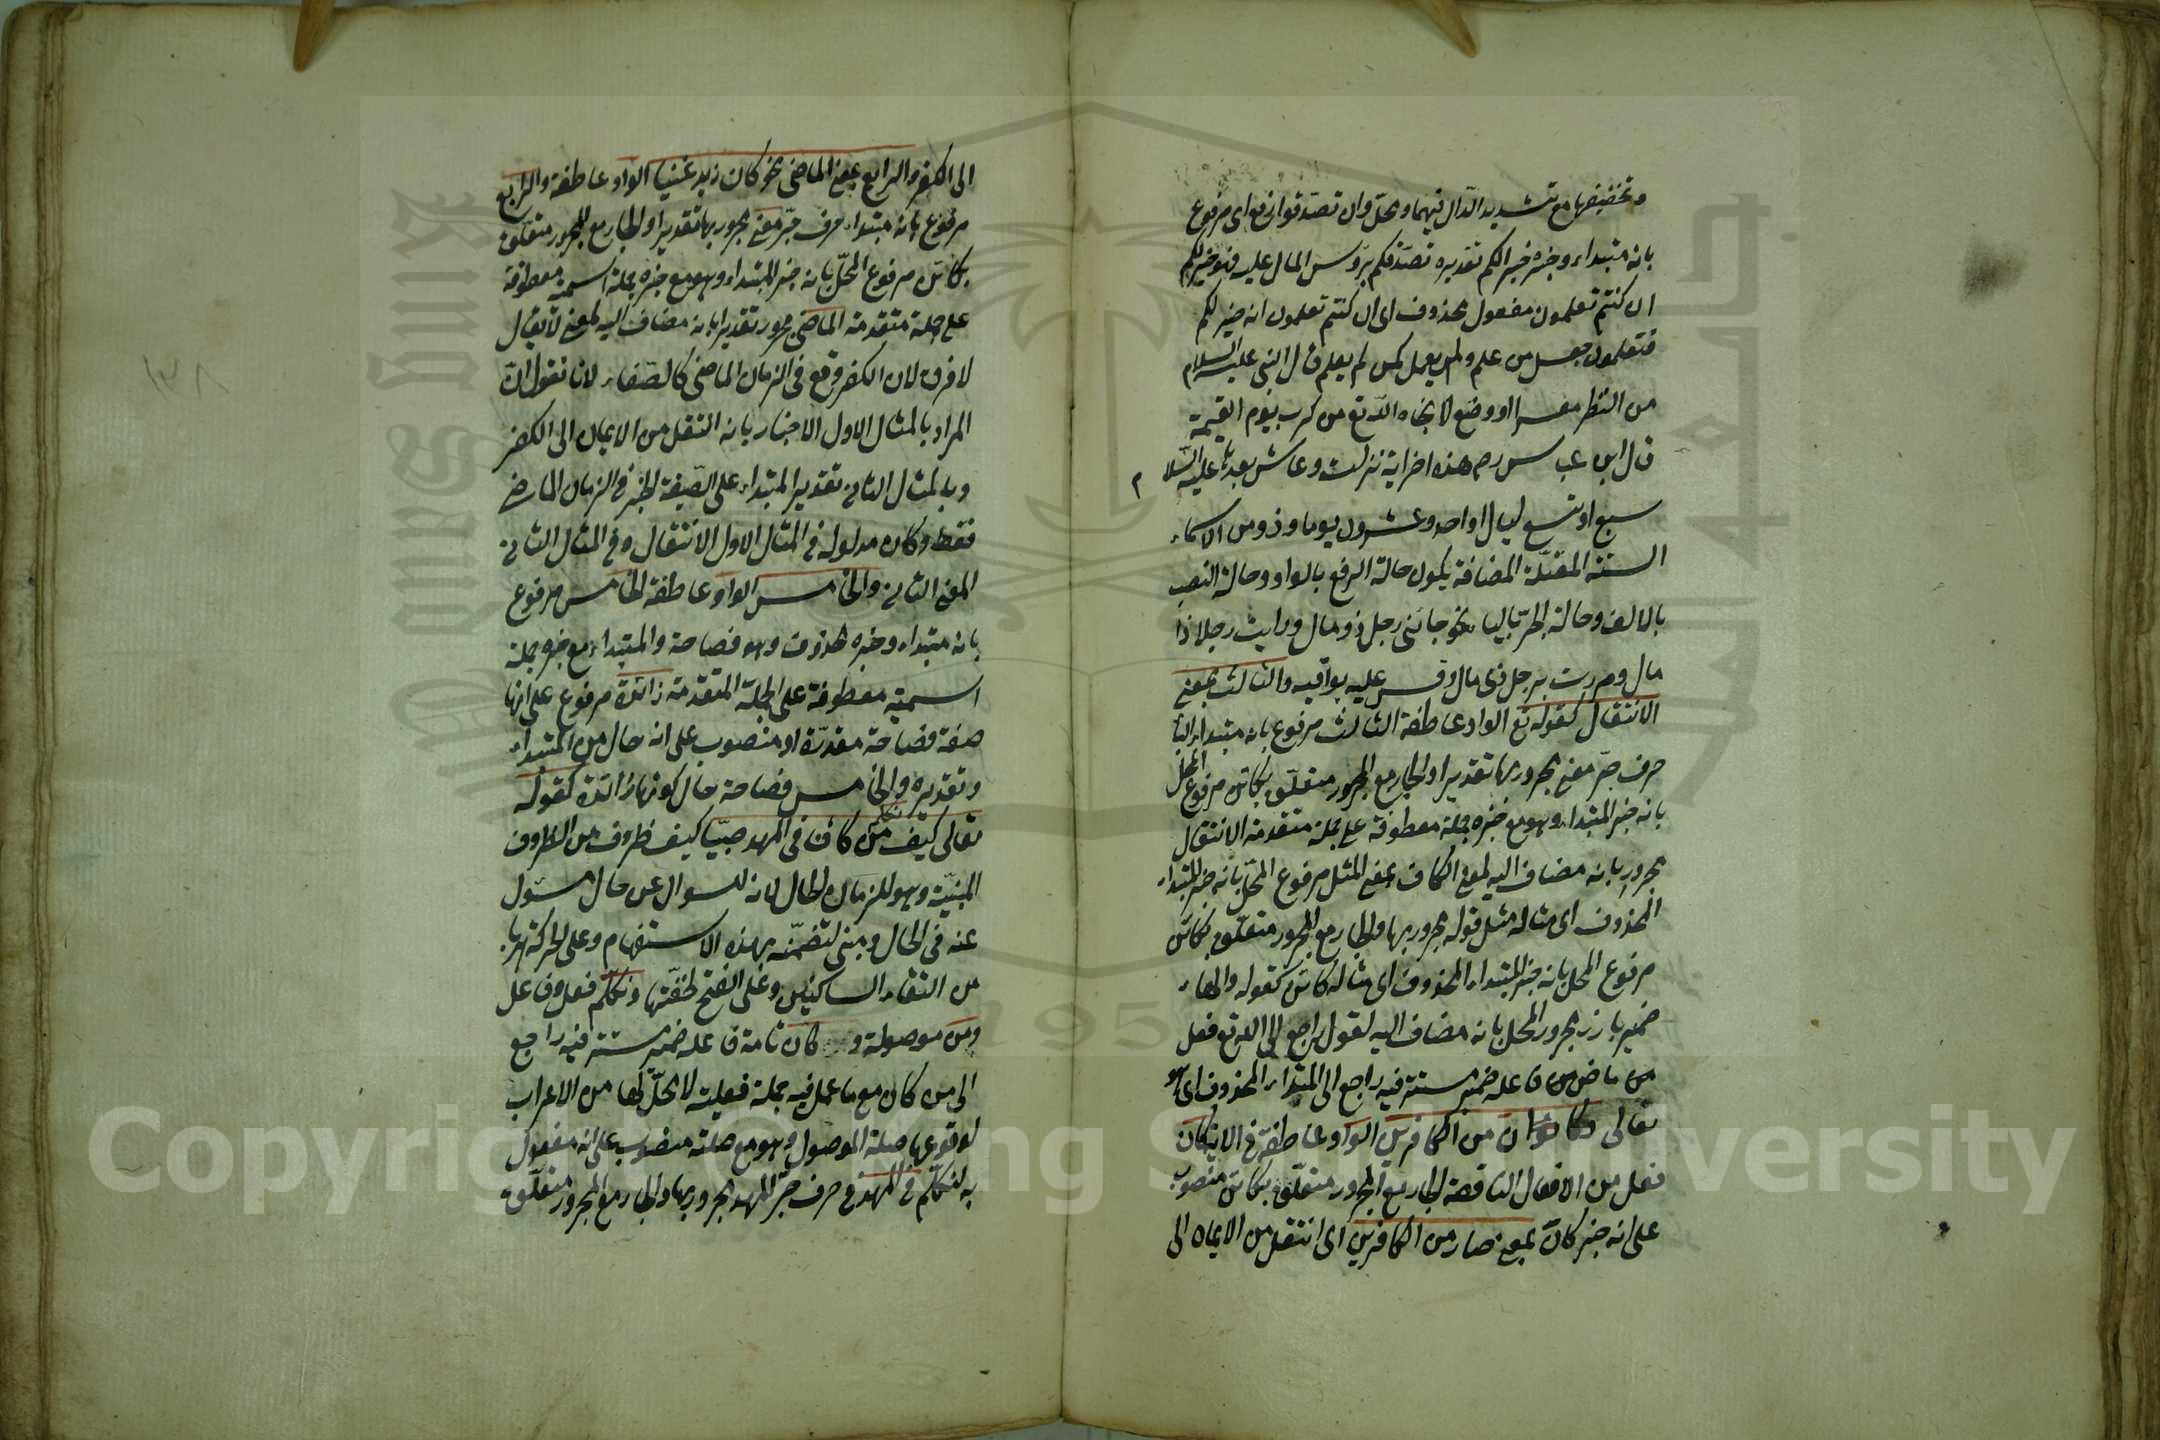 وتخفيفها مع تشديد الدال فيهما ومحل وان تصدقوا رفع اى مرفوع
بانه مبتداء وخبره خير لكم تقديره تصدقكم برؤس المال عليه فهو خير لكم
ان كنتم تعلمون مفعول محذوف اى ان كنتم تعلمون انه خير لكم
فتعلمون جعل من علم ولم يعمل كمن لم يعلم قال النبى عليه السلام
من انتظر معسرا او وضع له انجاه الله تع من كرب يوم القيمة
قال ابن عباس رم هذه اخر اية نزلت وعاش بعدها عليه السلا م
سبع او تسع ليال او احد وعشرون يوما وذو من الاسماء
الستة المعتلة المضافة يكون حالة الرفع بالواو وحالة النصب
بالالف وحالة الجر بالياء نحو جائنى رجل ذو مال ورايت رجلا ذا
مال ومررت برجل ذى مال وقس عليه بواقيه والثالث بمعنى
الانتقال كقوله تع الواو عاطفة الثالث مرفوع بانه مبتداء الباء
حرف جر معنى مجرور بها تقديرا والجار مع المجرور متعلق بكائن مرفوع المحل
بانه خبر المبتداء وهو مع خبره جملة معطوفة على جملة متقدمة الانتقال
مجرور بانه مضاف اليه لمعنى الكاف بمعنى المثل مرفوع المحل بانه خبر المبتداء
المحذوف اى مثاله مثل قوله مجرور بها والجار مع المجرور متعلق بكائن
مرفوع المحل بانه خبر المبتداء المحذوف اى مثاله كائن كقوله والهاء
ضمير بارز مجرور المحل بانه مضاف اليه لقول راجع الى الله تع فعل
من ماض من فاعله ضمير مستتر فيه راجع الى المبتداء المحذوف اى هو
تعالى وكان من الكافرين الواو عاطفة فى الاية كان
فعل من الافعال الناقصة الجار مع المجرور متعلق بكائن منصوب
على انه خبر كان بمعنى صار من الكافرين اى انتقل من الايمان الى
الى الكفر والرابع بمعنى الماضى نحو كان زيد غنيا الواو عاطفة والرابع
مرفوع بانه مبتداء حرف جر معنى مجرور بها تقديرا والجار مع المجرور متعلق
بكائن مرفوع المحل بانه خبر المبتداء وهو مع خبره جملة اسمية معطوفة
على جملة متقدمة الماضى مجرور تقديرا بانه مضاف اليه لمعنى لا يقال
لا فرق لان الكفر وقع فى الزمان الماضى كالصفاء لانا نقول ان
المراد بالمثال الاول الاخبار بانه انتقل من الايمان الى الكفر
وبالمثال الثانى تقدير المبتداء على الصيغة الخبر فى الزمان الماضى
فقط وكان مدلوله فى المثال الاول الانتقال وفى المثال الثانى
المعنى الثانى والخامس الواو عاطفة الخامس مرفوع
بانه مبتداء وخبره محذوف وهو فصاحة والمبتداء مع خبره جملة
اسمية معطوفة على الجملة المتقدمة زائدة مرفوع على انها
صفة فصاحة مقدرة او منصوب على انه حال من المبتداء
وتقديره والخامس فصاحة حال كونها زائدة كقوله
تعالى كيف نكلم من كان فى المهد صبيا كيف ظروف من الظروف
المبنية وهو للزمان الحال لانه للسوال عن حال مسئول
عنه فى الحال ومبنى لتضمنه بهذه الاستفهام وعلى الحركة هربا
من التقاء الساكنين وعلى الفتح لخفتها ونكلم فعل وفاعل
ومن موصولة و كان تامة فاعله ضمير مستتر فيه راجع
الى من كان مع ما عمل فيه جملة فعلية لا محل لها من الاعراب
لوقوعها صلة الموصول وهو مع صلته منصوب على انه مفعول
به لنكلم فى المهد فى حرف جر المهد مجرور بها والجار مع المجرور متعلق
١٣٨
Copyright © King Saud University
King Saud University
جامعة الملك سعود
195